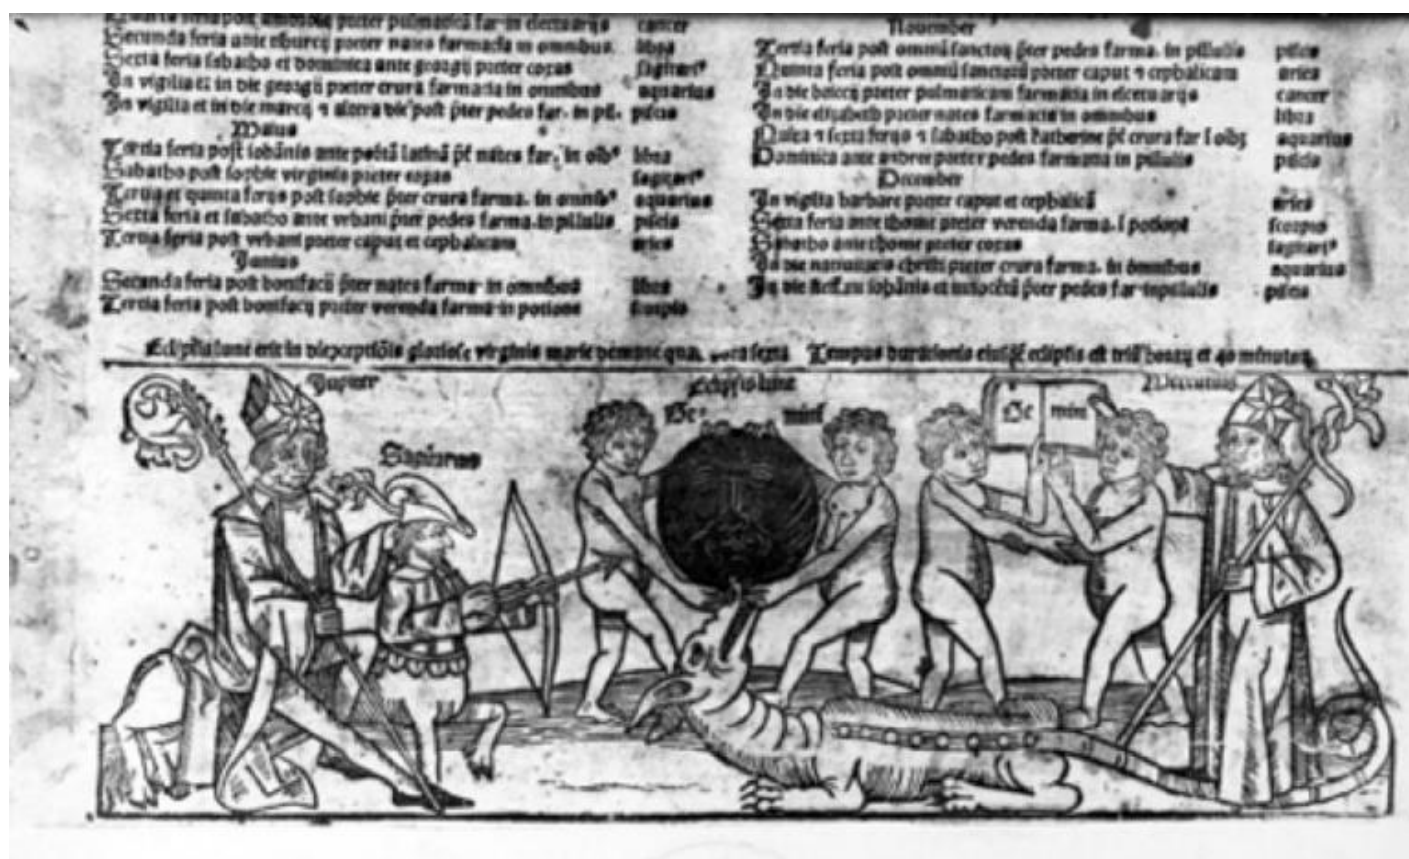 Secunda feria ante tiburcij preter nates farmacia in omnibus. libra
Sexta feria sabatho et dominica ante georgij preter coxas sagitari⁹
In vigilia et in die georgij preter crura farmacia in omnibus aquarius
In vigilia et in die marci ⁊ altera die post p̄ter pedes far. in pil. piscis
Maius
Tertia feria post iohānis ante portā latinā p̄t nates far. in oib⁹ libra
Sabatho post sophie virginis preter coxas sagitari⁹
Tertia et quinta ferijs post sophie p̄ter crura farma. in omnib⁹ aquarius
Sexta feria et sabatho ante vrbani p̄ter pedes farma. in pillulis piscis
Tertia feria post vrbani preter caput et cephalicam aries
Junius
Secunda feria post bonifacij p̄ter nates farma. in omnibus libra
Tertia feria post bonifacij preter verenda farma. in potione scorpio
November
Tertia feria post omniū sanctoꝝ p̄ter pedes farma. in pillulis piscis
Quinta feria post omniū sanctorū preter caput ⁊ cephalicam aries
In die preter pulmaticam farmatia in electuarijs cancer
In die elizabeth preter nates farmacia in omnibus libra
⁊ sexta ferijs ⁊ sabatho post katherine p̄t crura far ī oibꝫ aquarius
Dominica ante andree preter pedes farmatia in pillulis piscis
December
In vigilia barbare preter caput et cephalicā aries
Sexta feria ante thome preter verenda farma. ī potione scorpio
Sabatho ante thome preter coxas sagitari⁹
In die nativitatis christi preter crura farma. in omnibus aquarius
In die iohānis et p̄ter pedes far. in pillulis piscis
Eclipsis lune erit in die gloriose virginis marie hora sexta Tempus durationis eclipsis est triū horaꝝ et 40 minutoꝝ
Jupiter
Eclipsis lune
Mercurius
Ge mini
Ge mini
Sagitarius